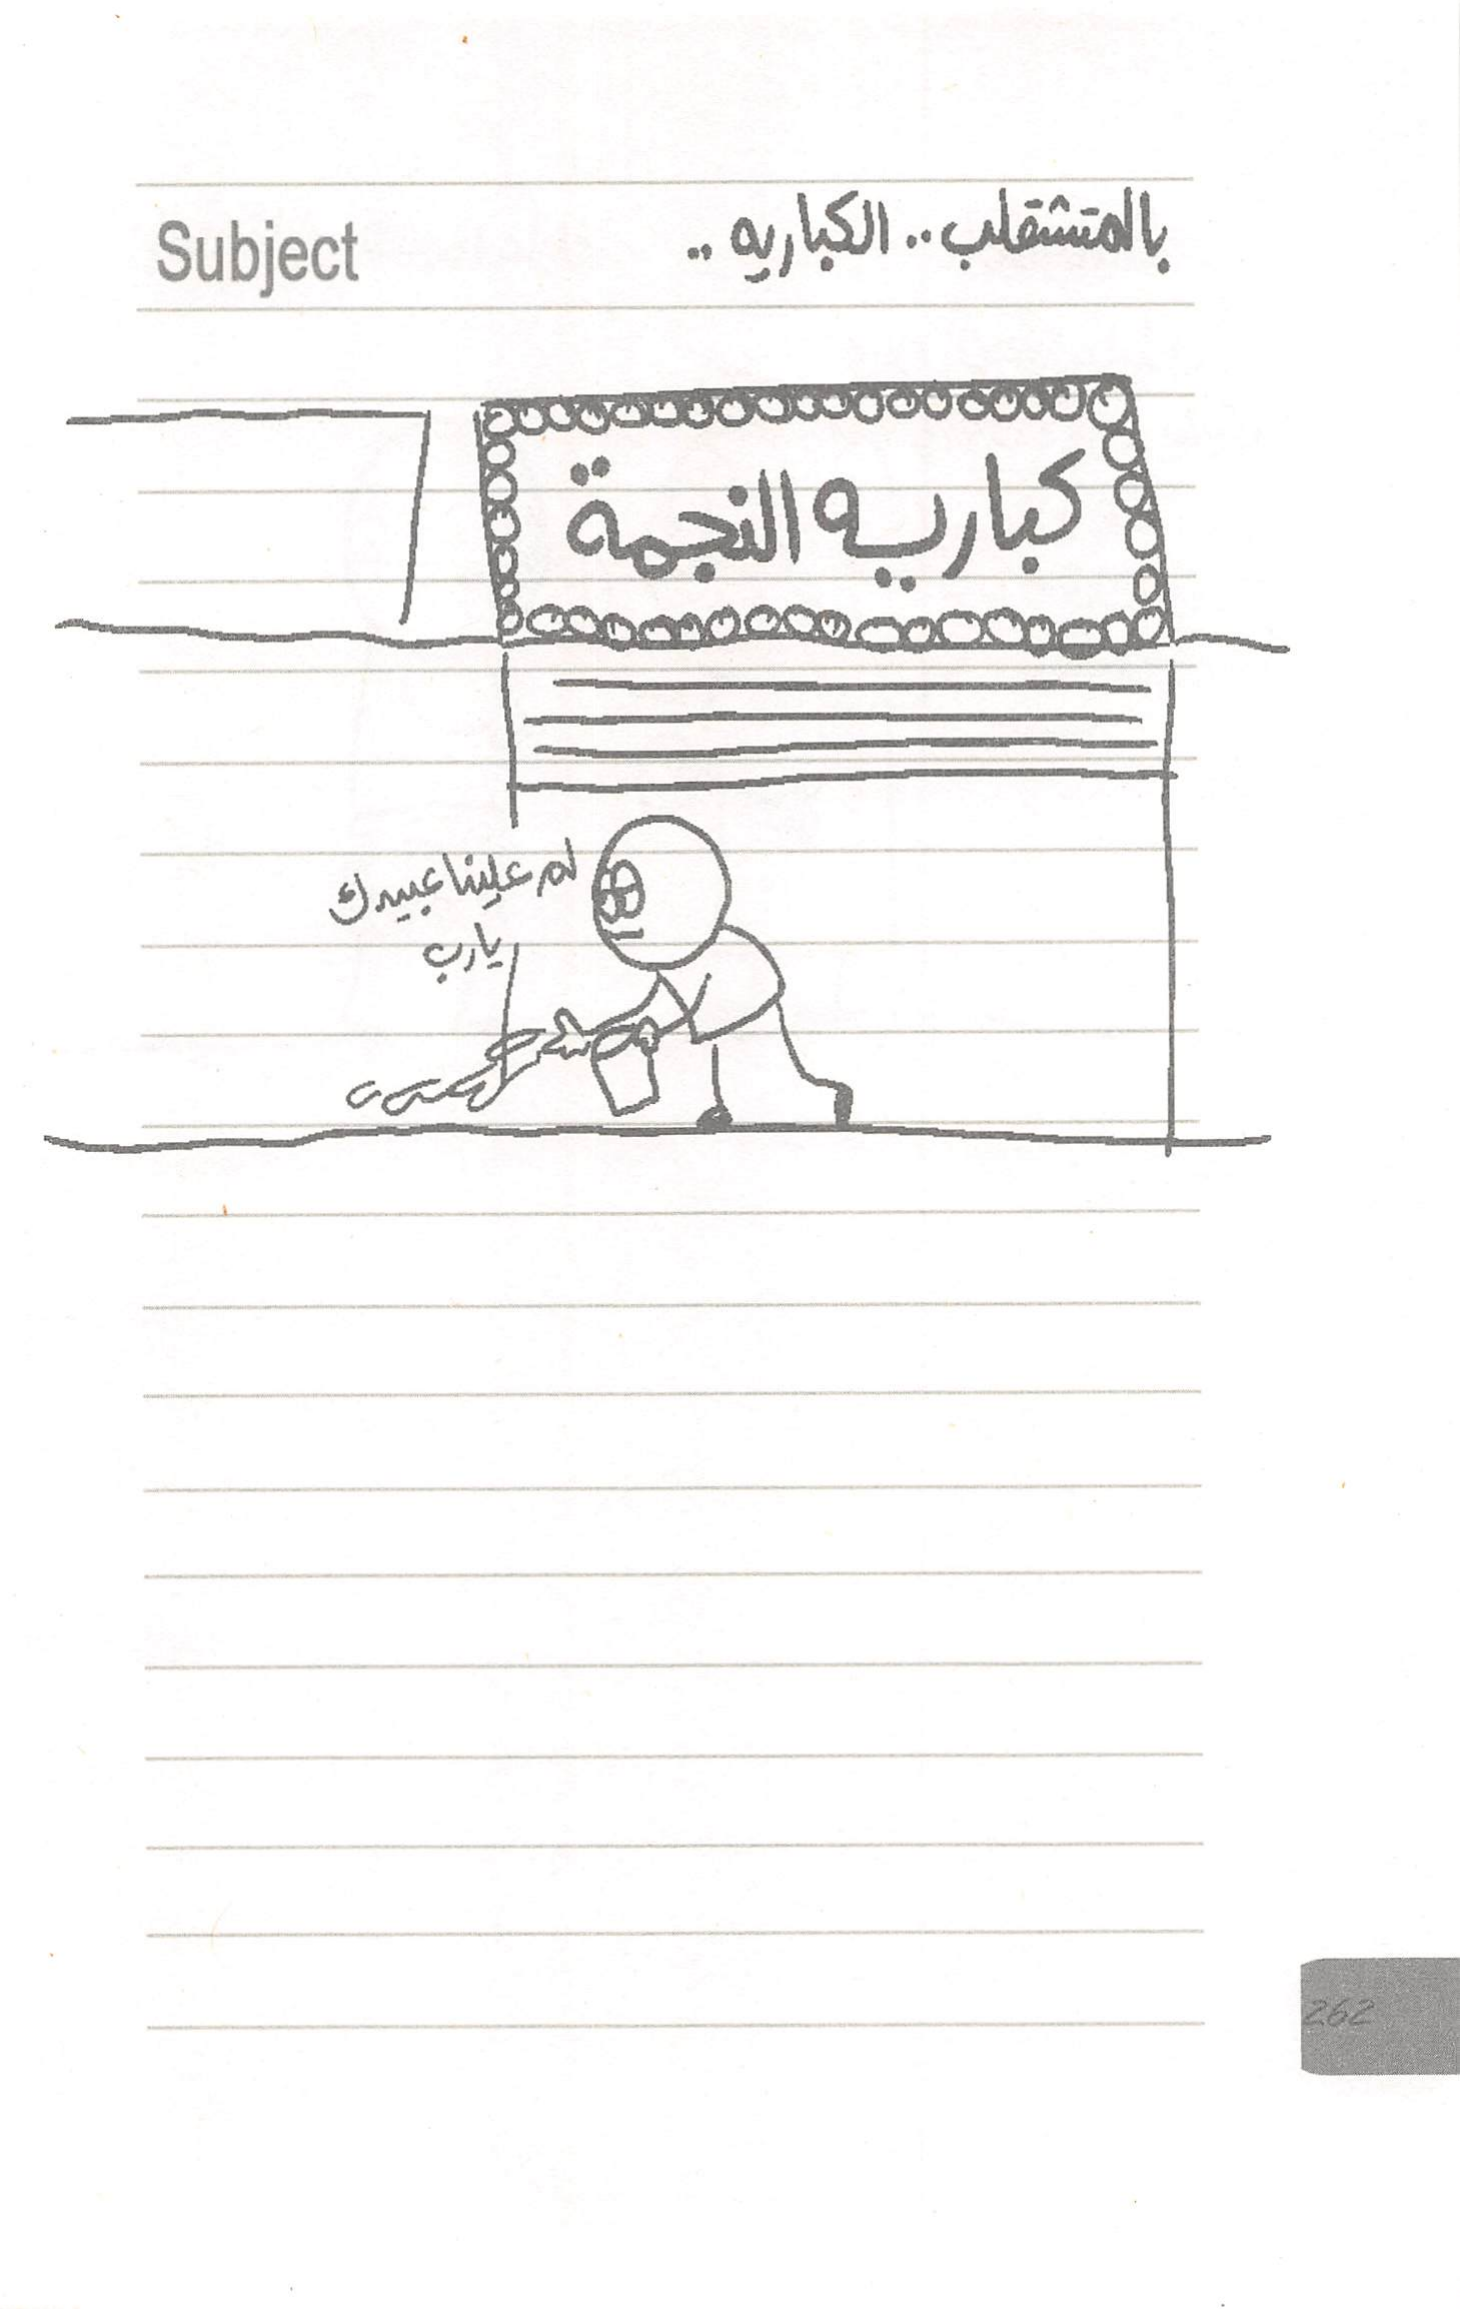 Subject
بالمتشقلب .. الكباريه ..
كباريه النجمة
لم علينا عبيدك
يارب
262